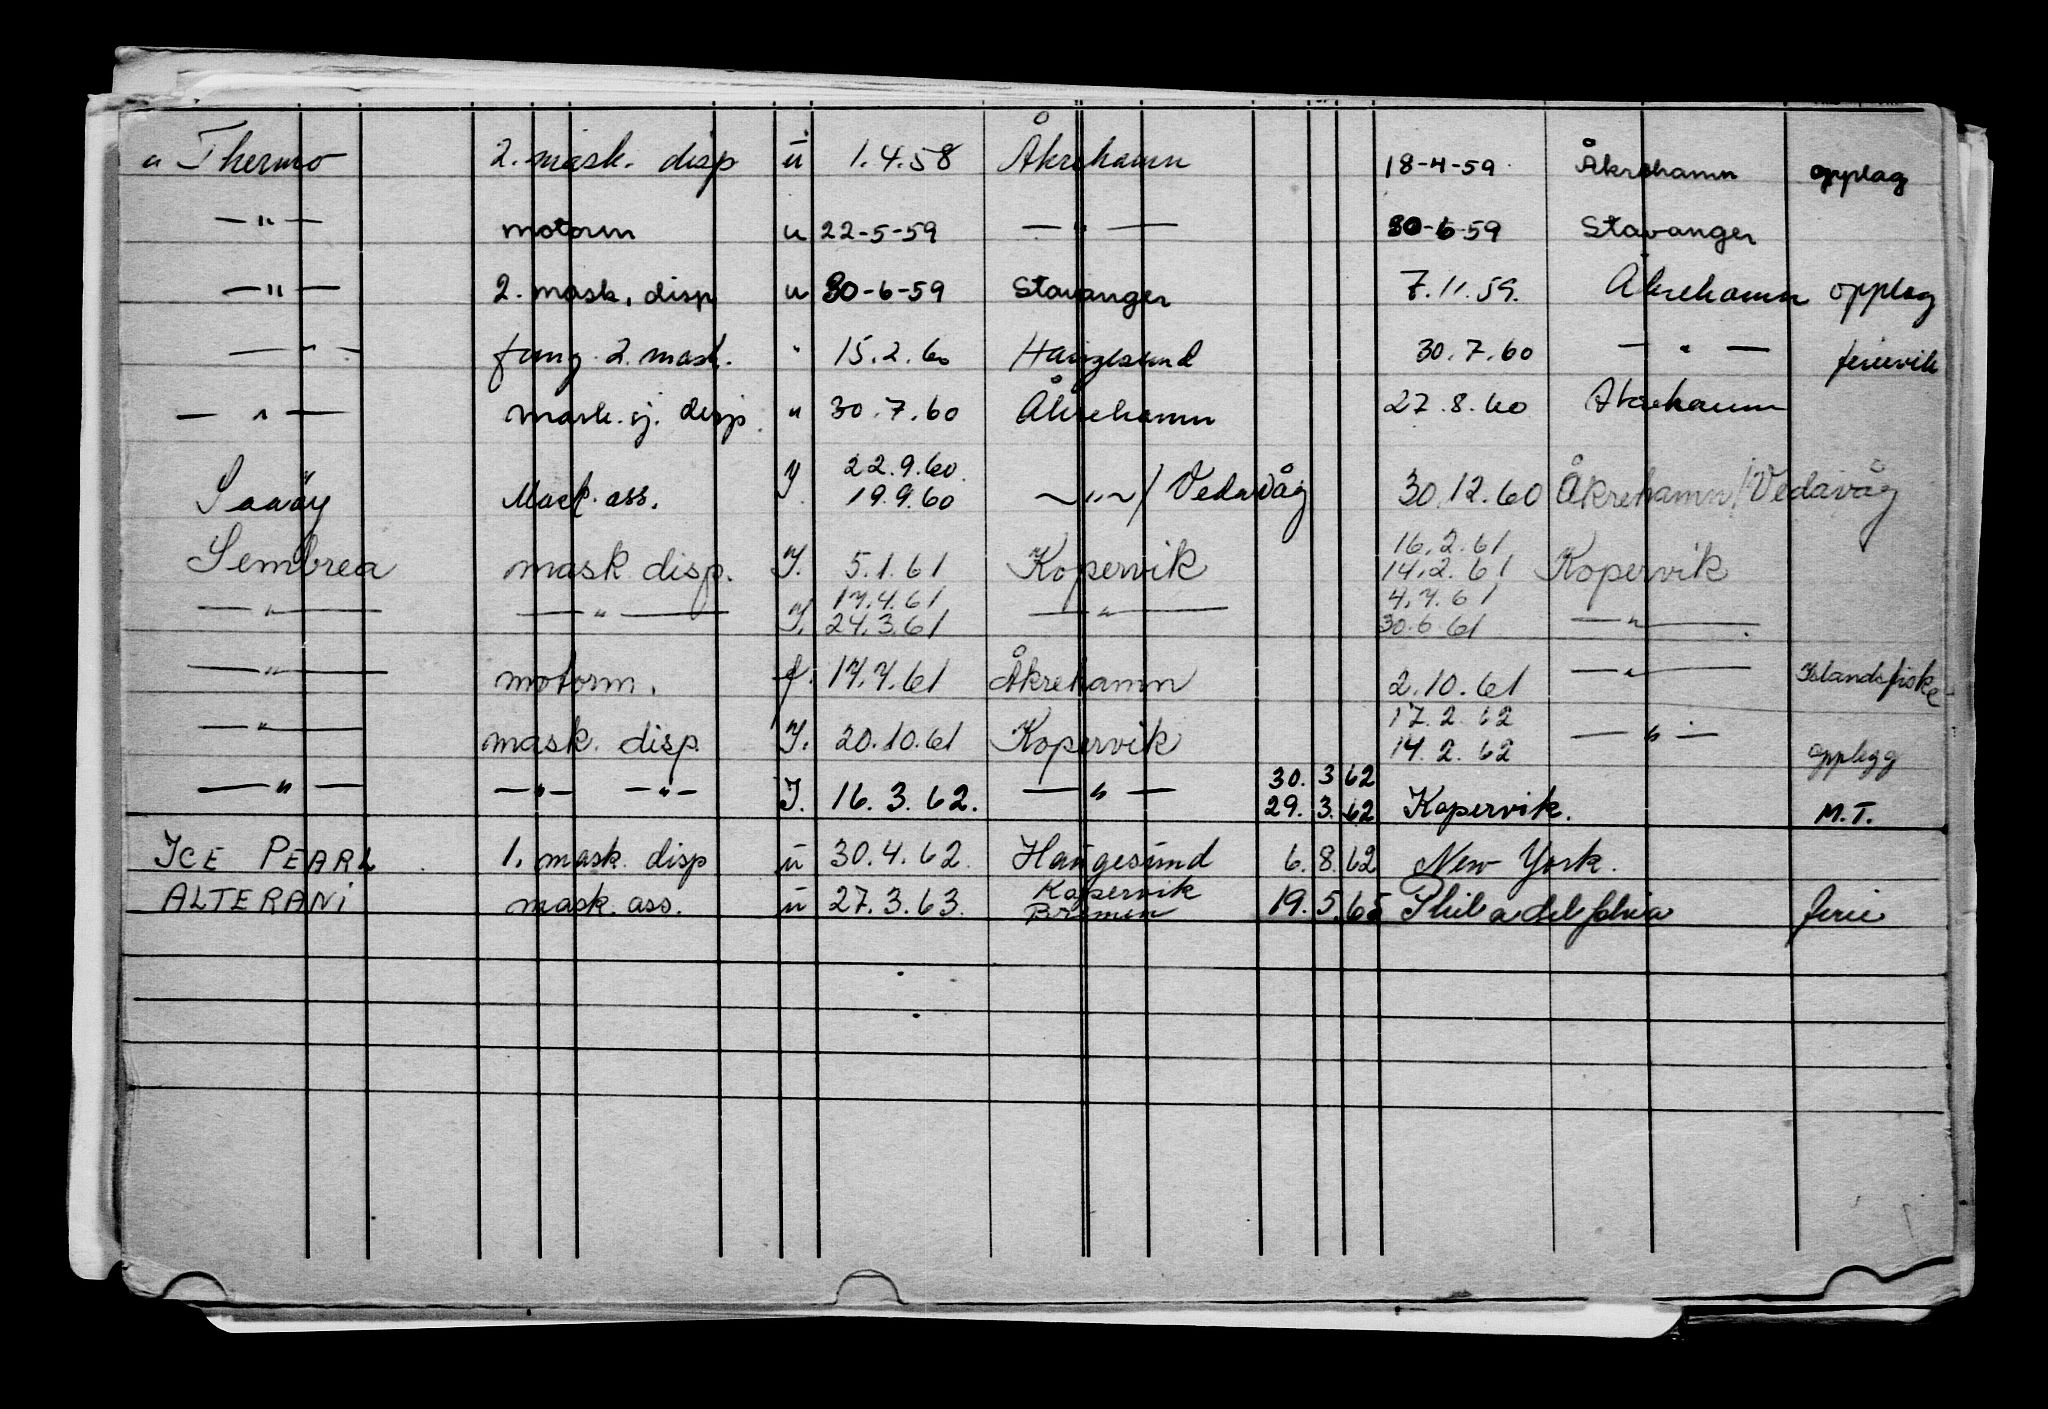 " Thermo 2. mask. disp u 1.4.58 Åkrehamn 18-4-59 Åkrehamn opplag
—"— motorm u 22-5-59 —"— 30-6-59 Stavanger
—"— 2. mask. disp u 30-6-59 Stavanger 7.11.59. Åkrehamn opplag
—"— fung. 2. mask. " 15.2.60 Haugesund 30.7.60 —"— ferievik
—"— mask. sj. disp. " 30.7.60 Åkrehamn 27.8.60 Åkrehamn
22.9.60
Mask. ass. 19.9.60 —"—/Vedavåg 30.12.60 Åkrehamn/Vedavåg
16.2.61
Sembrea mask disp. I. 5.1.61 Kopervik 14.2.61 Kopervik
17.4.61 4.7.61
—"— —"— I. 24.3.61 —"— 30.6.61 —"—
—"— motorm. f. 17.7.61 Åkrehamn 2.10.61 —"— Islandsfiske
17.2.62
—"— mask. disp I. 20.10.61 Kopervik 14.2.62 —"— opplegg
30. 3 62
—"— —"— —"— I. 16.3.62. —"— 29. 3. 62 Kopervik. M.T.
ICE PEARL 1. mask. disp u 30.4.62. Haugesund 6. 8. 62 New York.
Kopervik
ALTERANI mask. ass. u 27.3.63. Bremen 19. 5. 65 Philadelphia ferie